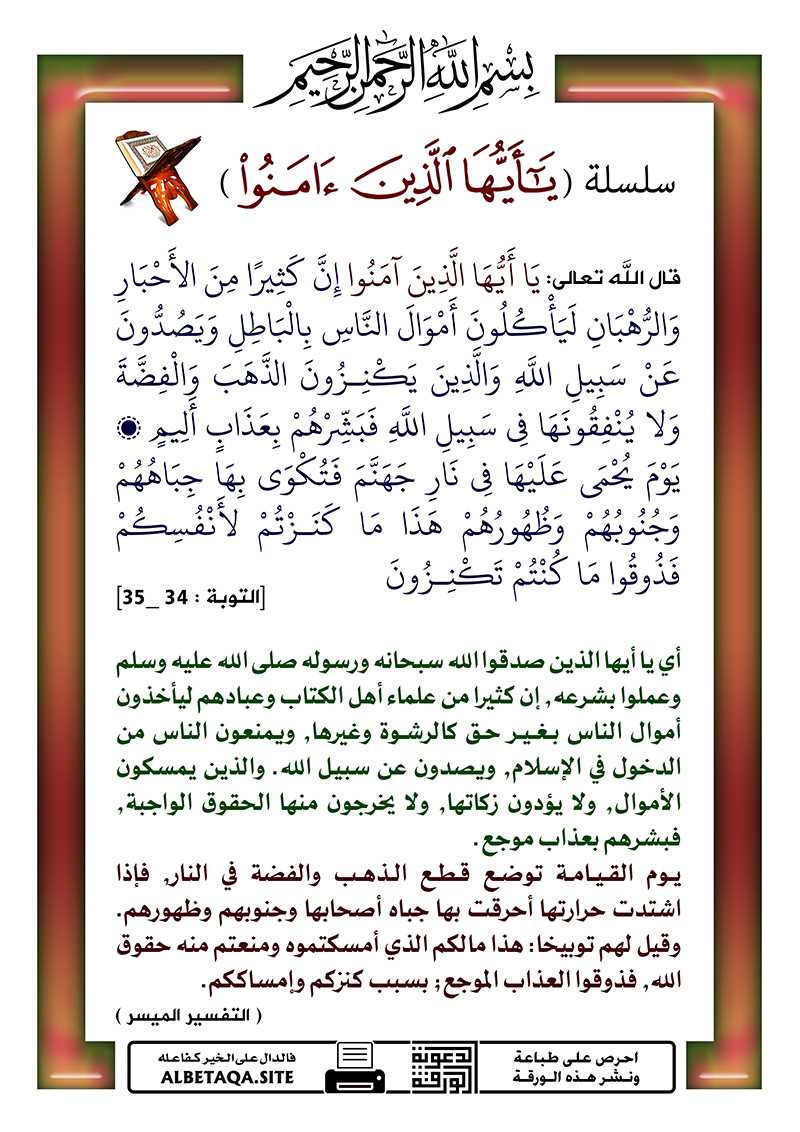 بِسْمِ اللَّهِ الرَّحْمَٰنِ الرَّحِيمِ
سلسلة ( يَٰٓأَيُّهَا ٱلَّذِينَ ءَامَنُوا۟ )
قال الله تعالى: يَا أَيُّهَا الَّذِينَ آمَنُوا إِنَّ كَثِيرًا مِنَ الأَحْبَارِ
وَالرُّهْبَانِ لَيَأْكُلُونَ أَمْوَالَ النَّاسِ بِالْبَاطِلِ وَيَصُدُّونَ
عَنْ سَبِيلِ اللَّهِ وَالَّذِينَ يَكْنِزُونَ الذَّهَبَ وَالْفِضَّةَ
وَلا يُنْفِقُونَهَا فِي سَبِيلِ اللَّهِ فَبَشِّرْهُمْ بِعَذَابٍ أَلِيمٍ
يَوْمَ يُحْمَى عَلَيْهَا فِي نَارِ جَهَنَّمَ فَتُكْوَى بِهَا جِبَاهُهُمْ
وَجُنُوبُهُمْ وَظُهُورُهُمْ هَذَا مَا كَنَزْتُمْ لأَنْفُسِكُمْ
فَذُوقُوا مَا كُنْتُمْ تَكْنِزُونَ
[التوبة : 34 _35]
أي يا أيها الذين صدقوا الله سبحانه ورسوله صلى الله عليه وسلم
وعملوا بشرعه, إن كثيرا من علماء أهل الكتاب وعبادهم ليأخذون
أموال الناس بغير حق كالرشوة وغيرها, ويمنعون الناس من
الدخول في الإسلام, ويصدون عن سبيل الله. والذين يمسكون
الأموال, ولا يؤدون زكاتها, ولا يخرجون منها الحقوق الواجبة,
فبشرهم بعذاب موجع.
يوم القيامة توضع قطع الذهب والفضة في النار, فإذا
اشتدت حرارتها أحرقت بها جباه أصحابها وجنوبهم وظهورهم.
وقيل لهم توبيخا: هذا مالكم الذي أمسكتموه ومنعتم منه حقوق
الله, فذوقوا العذاب الموجع; بسبب كنزكم وإمساككم.
( التفسير الميسر )
احرص على طباعة
ونشر هذه الورقة
الورقة
الدعوية
فالدال على الخير كفاعله
ALBETAQA.SITE